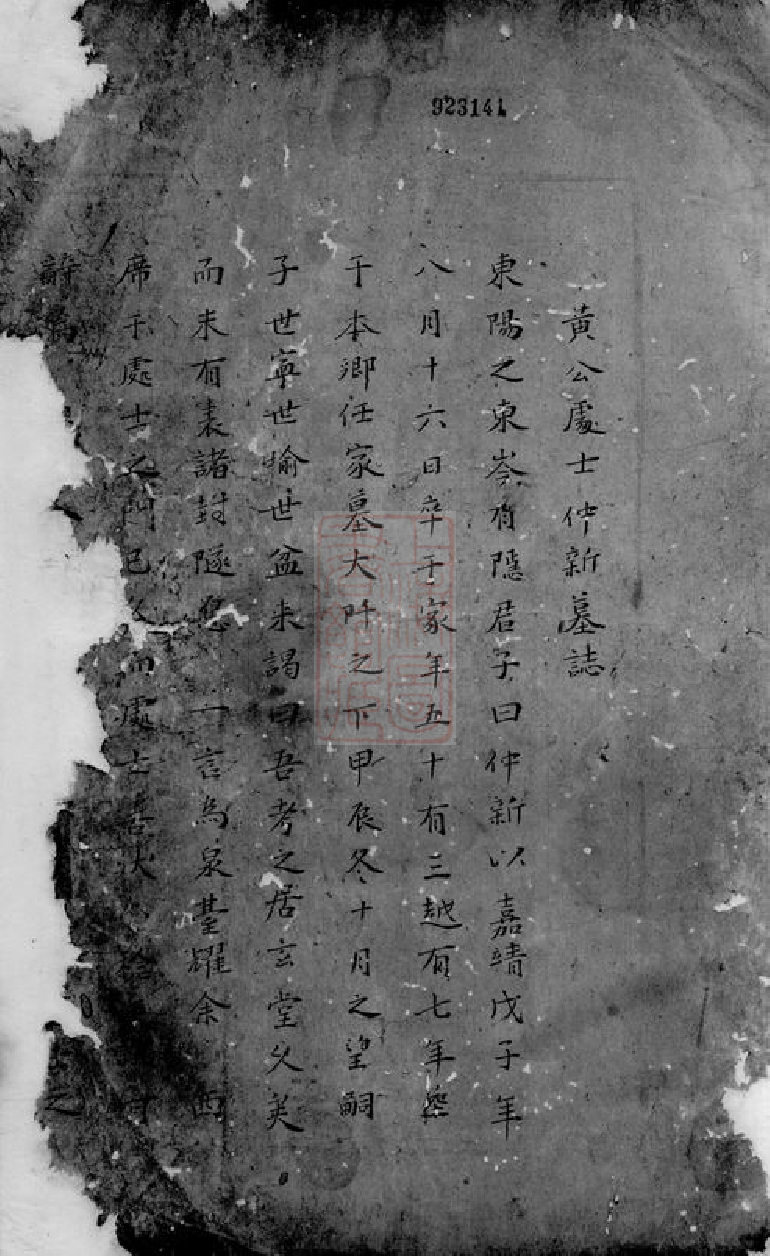 923141
黃公處士仲新墓誌
東陽之東岑有隱君子曰仲新以嘉靖戊子年
八月十六日卒于家年五十有三越有七年塟
于本鄉任家墓大阡之下甲辰冬十月之望嗣
子世寧世輸世盆來謁曰吾考之居玄堂久矣
而未有表諸封隧 一言為泉臺耀余 西
席于處士之門已久而處士
詩 之